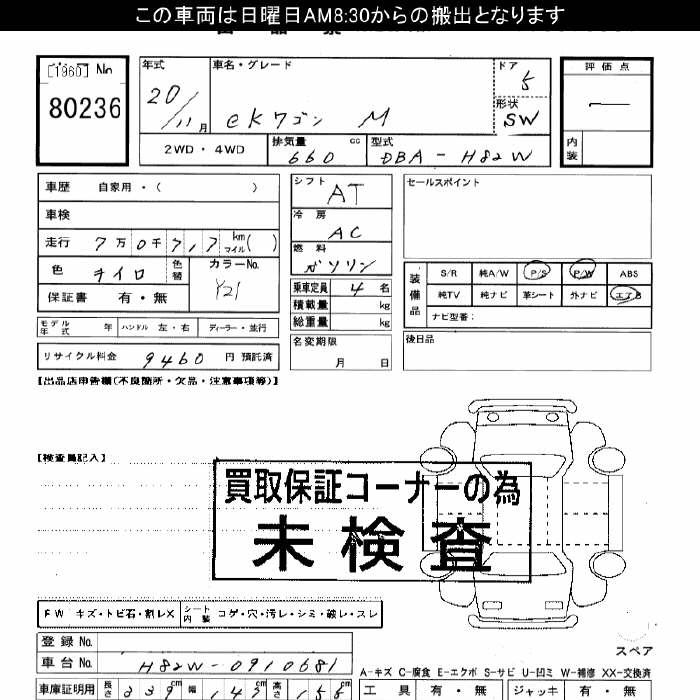 この車両は日曜日AM8:30からの搬出となります
[1960] No
80236
年式 車名・グレード ドア 評価点
20/11月 eKワゴン M 5
形状 SW
―
内装
2WD・4WD 排気量 660 cc 型式 DBA-H82W
車歴 自家用・( )
車検
走行 7万0千7,17 km マイル( )
色 キイロ 色替 カラーNo. Y21
保証書 有・無
シフト AT
冷房 AC
燃料 ガソリン
乗車定員 4名
積載量 kg
総重量 kg
セールスポイント
装備品 S/R 純A/W P/S P/W ABS
純TV 純ナビ 革シート 外ナビ エアB
ナビ型番:
モデル年式 年 ハンドル 左・右 ディーラー・並行
名変期限 月 日
後日品
リサイクル料金 9460 円 預託済
【出品店申告欄(不良箇所・欠品・注意事項等)】
【検査員記入】
買取保証コーナーの為
未検査
FW キズ・トビ石・割レX シート内装 コゲ・穴・汚レ・シミ・破レ・スレ
登録No.
車台No. H82W-0910681
スペア
A-キズ C-腐食 E-エクボ S-サビ U-凹ミ W-補修 XX-交換済
車庫証明用 長さ 339cm 幅 147cm 高さ 155cm
工具 有・無 ジャッキ 有・無